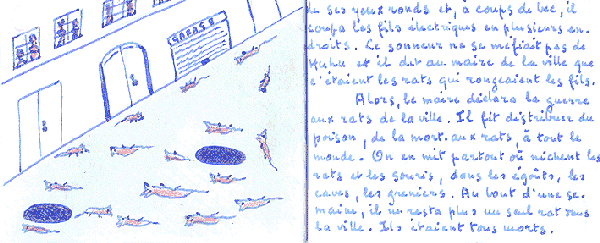 GARAGE
de ses yeux ronds et, à coups de bec, il
coupa les fils électriques en plusieurs en-
droits. Le sonneur ne se méfiait pas de
Kuku et il dit au maire de la ville que
c'étaient les rats qui rongeaient les fils.
Alors, le maire déclara la guerre
aux rats de la ville. Il fit distribuer du
poison, de la mort aux rats, à tout le
monde. On en mit partout où nichent les
rats et les souris, dans les égoûts, les
caves, les greniers. Au bout d'une se-
maine, il ne resta plus un seul rat dans
la ville. Ils étaient tous morts.